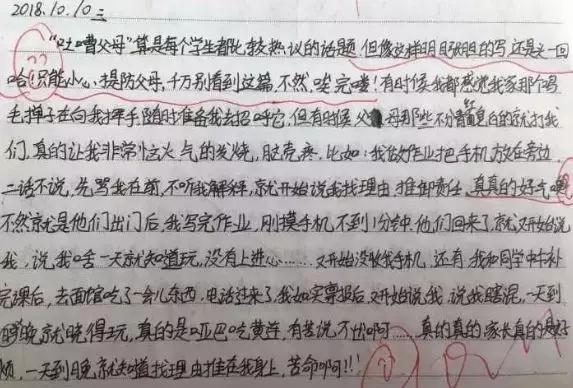 2018.10.10 三
"吐嘈父母"算是每个学生都比较热议的话题.但像这样明目张胆的写,还是头一回
哈!只能小心、提防父母,千万别看到这篇.不然,唉完喽!有时候我都感觉我家那个鸡
毛掸子在向我挥手,随时准备我去招呼它.但有时候父母那些不分青红皂白的就打我
们.真的让我非常恼火气的发烧,脑壳疼.比如:我做作业把手机放在旁边,
二话不说,先骂我在前,不听我解释,就开始说我找理由,推卸责任.真真的好气
不然就是他们出门后,我写完作业,刚摸手机不到1分钟.他们回来了,就又开始说
我,说我啥一天就知道玩,没有上进心……又开始没收我手机.还有我和同学中午补
完课后,去面馆吃了一会儿东西.电话过来了,我如实禀报后,又开始说我,说我瞎混,一天到
晚就晓得玩,真的是哑巴吃黄连,有苦说不出啊……真的真的,家长真的是好
烦.一天到晚就知道找理由推在我身上,苦命啊!!!